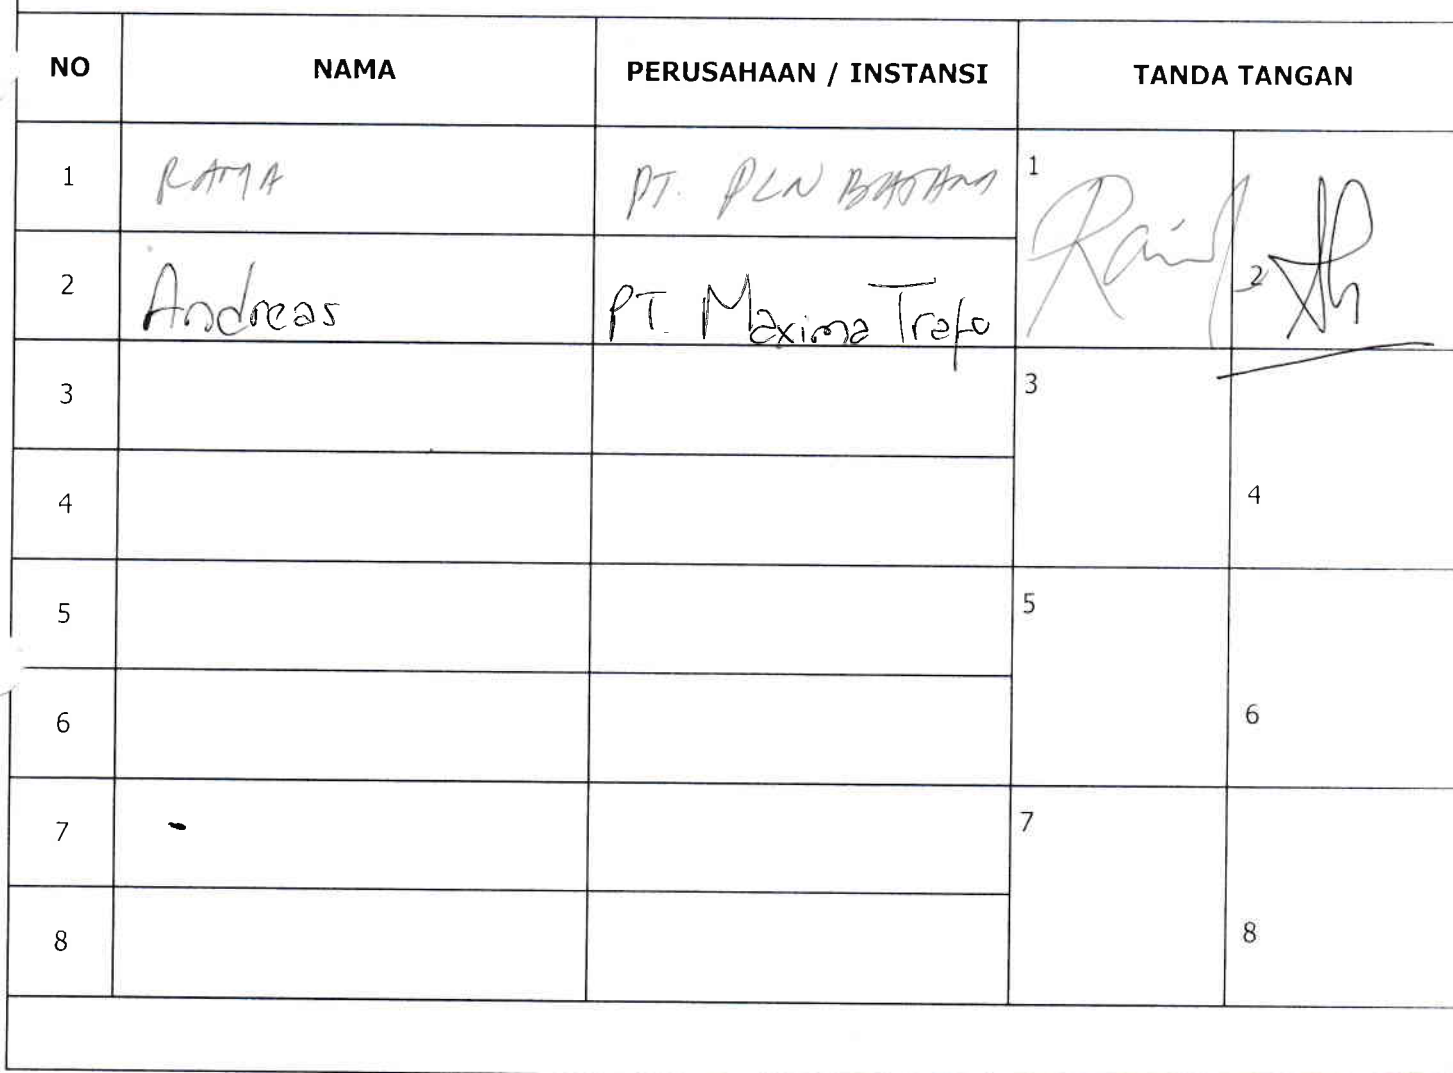 NO NAMA PERUSAHAAN / INSTANSI TANDA TANGAN
1 RAMA PT. PLN BATAM 1
2 Andreas PT. Maxima Trafo 2
3 3
4 4
5 5
6 6
7 - 7
8 8